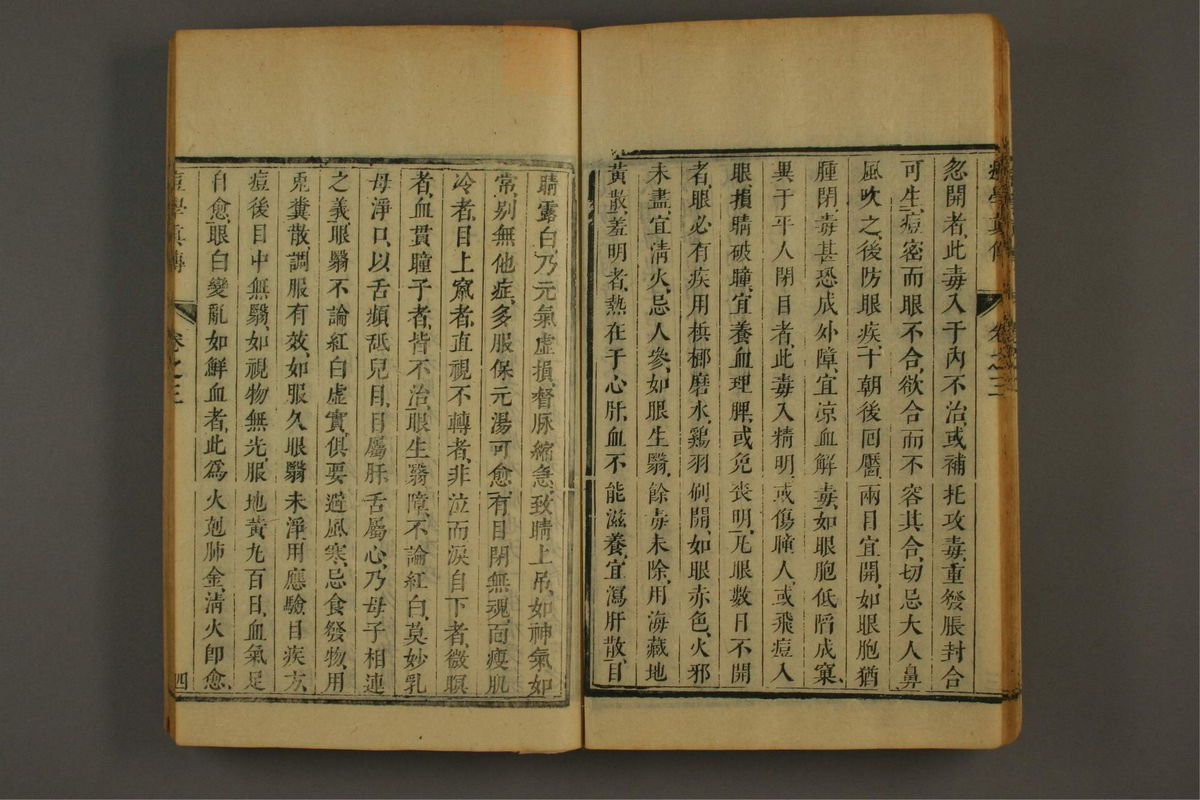 痘學眞傳 卷之三
忽開者、此毒入于內不治、或補托攻毒、重發脹封合
可生、痘密而眼不合、欲合而不容其合、切忌大人鼻
風吹之、後防眼疾、十朝後囘靨、兩目宜開、如眼胞猶
腫閉毒甚、恐成外障、宜凉血解毒、如眼胞低陷成窠
異于平人閉目者、此毒入精明、或傷瞳人、或飛痘入
眼、損睛破瞳、宜養血理脾、或免喪明、凡眼數日不開
者、眼必有疾、用梹榔磨水、鷄羽刷開、如眼赤色、火邪
未盡、宜淸火、忌人參、如眼生翳、餘毒未除、用海藏地
黃散、羞明者、熱在于心肝、血不能滋養、宜瀉肝散、目
睛露白、乃元氣虛損、督脉縮急、致睛上吊、如神氣如
常、别無他症、多服保元湯可愈、有目閉無魂、面瘦肌
冷者、目上竄者、直視不轉者、非泣而淚自下者、微瞑
者、血貫瞳子者、皆不治、眼生翳障、不論紅白、莫妙乳
母淨口、以舌頻舐兒目、目屬肝、舌屬心、乃母子相連
之義、眼翳不論紅白虛實、俱要避風寒、忌食發物、用
兎糞散、調服有效、如服久眼翳未淨、用應驗目疾方、
痘後目中無翳、如視物無光、服地黃九百日、血氣足
自愈、眼白變亂如鮮血者、此爲火剋肺金、淸火卽愈、
痘學眞傳 卷之三 四